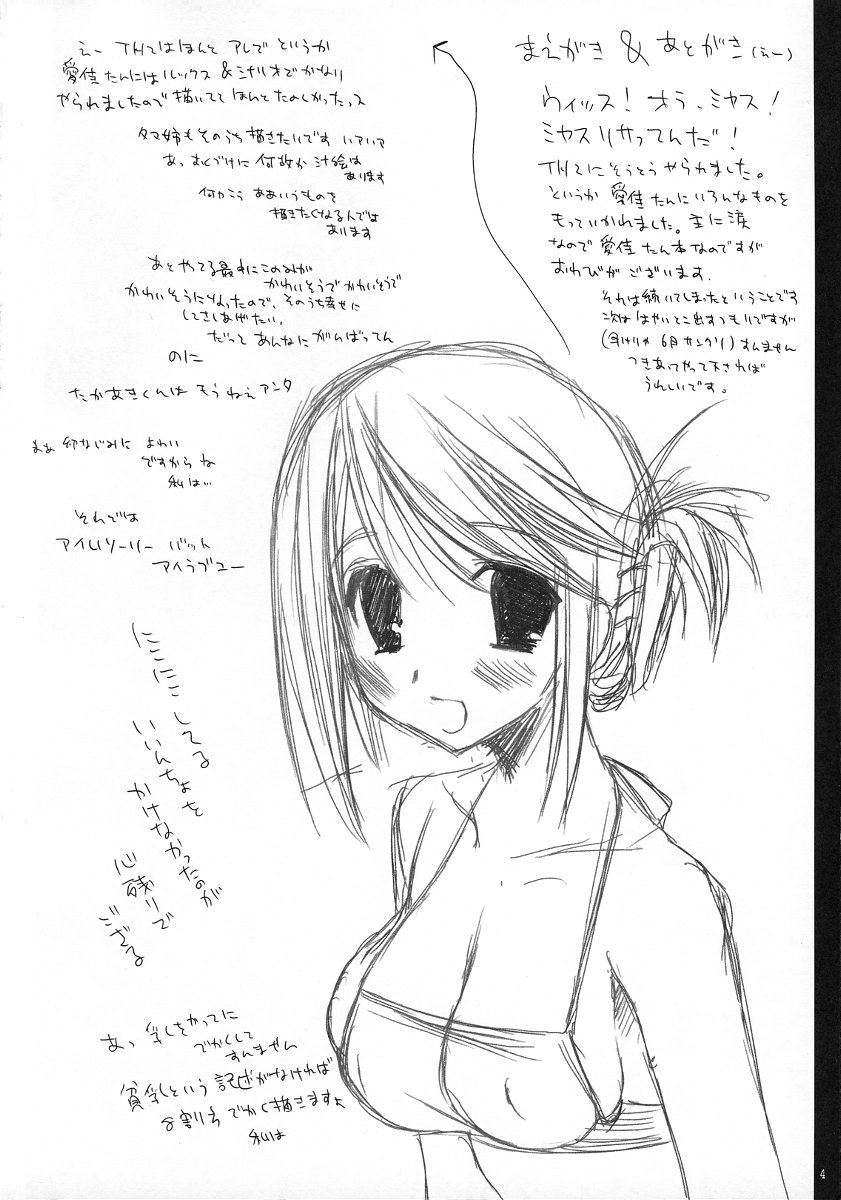 まえがき & あとがき(えー)
ウィッス! オラ、ミヤス!
ミヤスリサってんだ!
TH2にそうとうやられました。
というか 愛佳たんにいろんなものを
もっていかれました。主に涙
なので愛佳たん本なのですが
おわびがございます.
それは続いてしまったということです
次ははやいとこ出すつもりですが
すんません
つきあってやって下されば
うれしいです。
えー TH2はほんと アレで というか
愛佳たんにはルックス&シナリオでかなり
やられましたので描いてて ほんとたのしかったっス
タマ姉もそのうち描きたいです いアいア
あっ 何故か汁絵は
あります
何かこう ああいうものを
描きたくなるんでは
あります
あとやってる最中にこのみが
かわいそうでかわいそうで
かわいそうになったので、そのうち幸せに
してさしあげたい。
だって あんなにがんばってん
のに
たかあきくんは もうねえアンタ
まぁ 幼なじみに よわい
ですからな
私は…
それでは
アイムソーリー バット
アイラブユー
にこにこしてる
いいんちょを
かけなかったのが
心残りで
ござる
あっ 乳をかってに
でかくして
すんません
貧乳という記述がなければ
8割方でかく描きますよ
私は
4